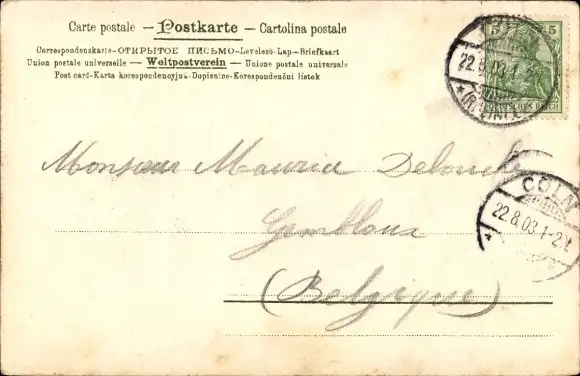 Carte postale — Postkarte — Cartolina postale
Correspondenzkarte-ОТКРЫТОЕ ПИСЬМО-Levelező-Lap-Briefkaart
Union postale universelle — Weltpostverein — Unione postale universale
Post card-Karta korespondencyjna-Dopisnice-Korespondenční lístek
5 5
22.8.03.1-2
DEUTSCHES REICH
Monsieur Maurice
CÖLN
22.8.03.1-2N.
Gembloux
(Belgique)